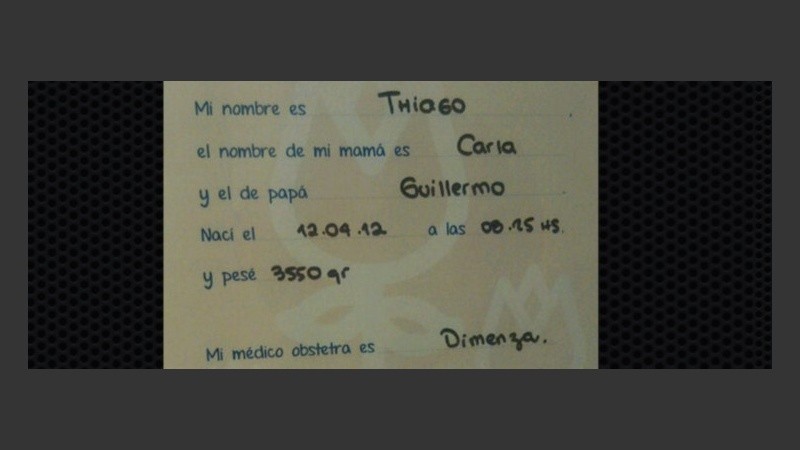 Mi nombre es THiAGO
el nombre de mi mamá es Carla
y el de papá Guillermo
Nací el 12.04.12 a las 08.25 HS.
y pesé 3550 gr
Mi médico obstetra es Dimenza.